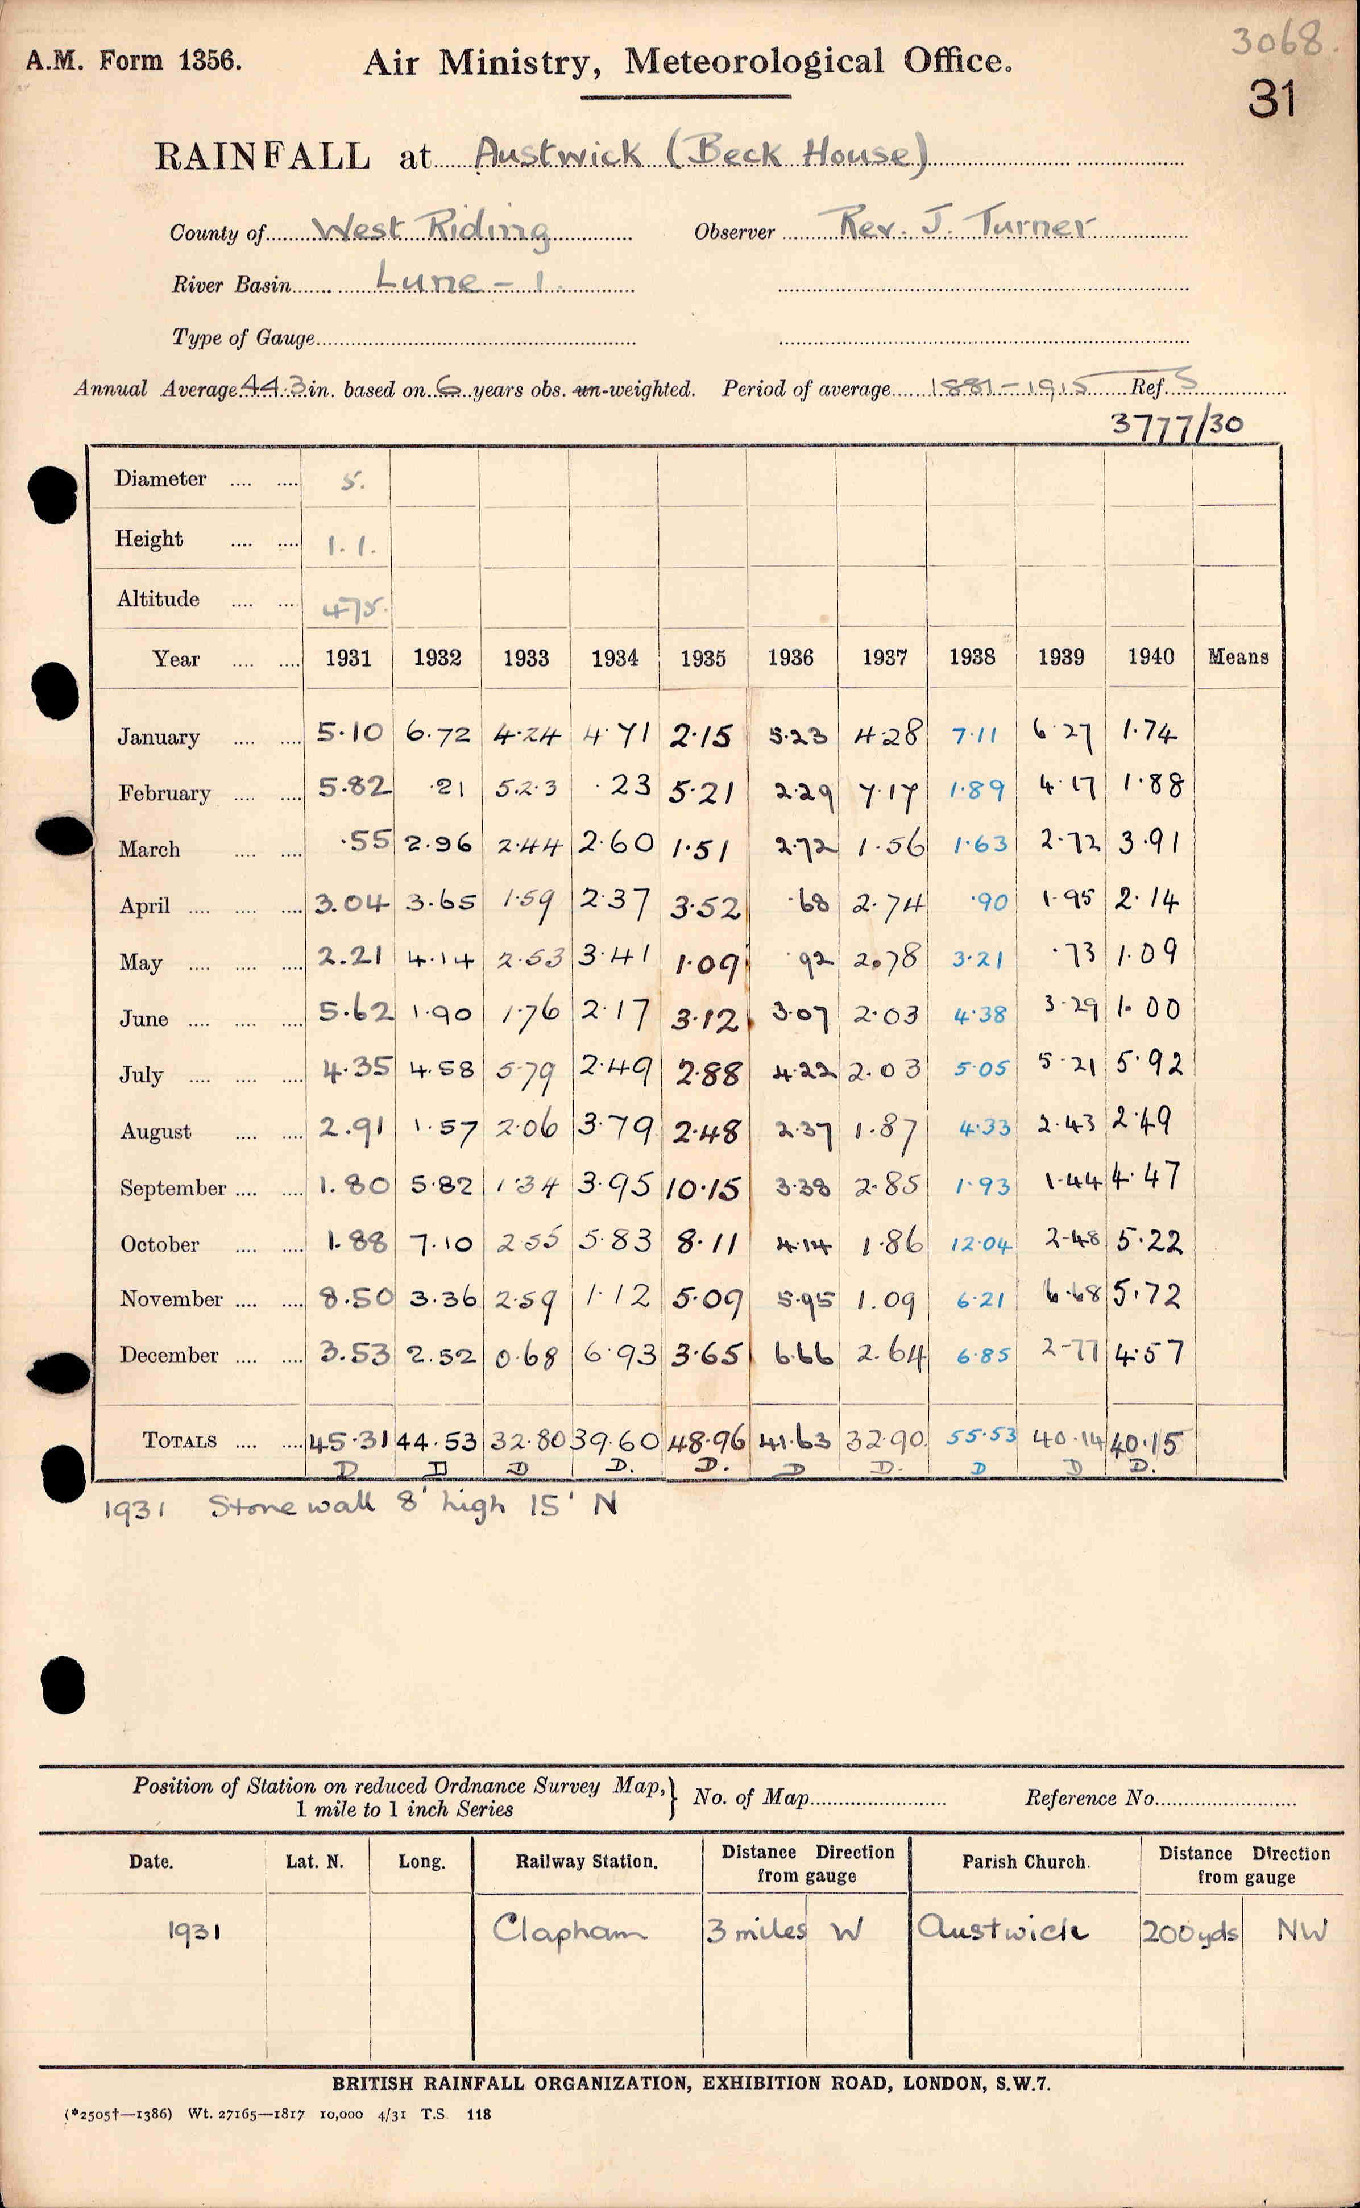 3068.
A.M. Form 1356. Air Ministry, Meteorological Office.
31
RAINFALL at Austwick (Beck House)
County of West Riding Observer Rev. J. Turner
River Basin Lune - 1.
Type of Gauge
Annual Average 44.3 in. based on 6 years obs. un-weighted. Period of average 1881-1915 Ref. S
3777/30
Diameter 5.
Height 1.1.
Altitude 475.
Year 1931 1932 1933 1934 1935 1936 1937 1938 1939 1940 Means
January 5.10 6.72 4.24 4.71 2.15 5.23 4.28 7.11 6.27 1.74
February 5.82 .21 5.23 .23 5.21 2.29 7.17 1.89 4.17 1.88
March .55 2.96 2.44 2.60 1.51 2.72 1.56 1.63 2.72 3.91
April 3.04 3.65 1.59 2.37 3.52 .68 2.74 .90 1.95 2.14
May 2.21 4.14 2.53 3.41 1.09 .92 2.78 3.21 .73 1.09
June 5.62 1.90 1.76 2.17 3.12 3.07 2.03 4.38 3.29 1.00
July 4.35 4.58 5.79 2.49 2.88 4.22 2.03 5.05 5.21 5.92
August 2.91 1.57 2.06 3.79 2.48 2.37 1.87 4.33 2.43 2.49
September 1.80 5.82 1.34 3.95 10.15 3.38 2.85 1.93 1.44 4.47
October 1.88 7.10 2.55 5.83 8.11 4.14 1.86 12.04 2.48 5.22
November 8.50 3.36 2.59 1.12 5.09 5.95 1.09 6.21 6.68 5.72
December 3.53 2.52 0.68 6.93 3.65 6.66 2.64 6.85 2.77 4.57
TOTALS 45.31 44.53 32.80 39.60 48.96 41.63 32.90 55.53 40.14 40.15
D D D D. D. D D. D D D.
1931 Stone wall 8' high 15' N
Position of Station on reduced Ordnance Survey Map, } No. of Map Reference No.
1 mile to 1 inch Series
Date. Lat. N. Long. Railway Station. Distance Direction from gauge Parish Church. Distance Direction from gauge
1931 Clapham 3 miles W Austwick 200yds NW
BRITISH RAINFALL ORGANIZATION, EXHIBITION ROAD, LONDON, S.W.7.
(*2505†—1386) Wt. 27165—1817 10,000 4/31 T.S. 118